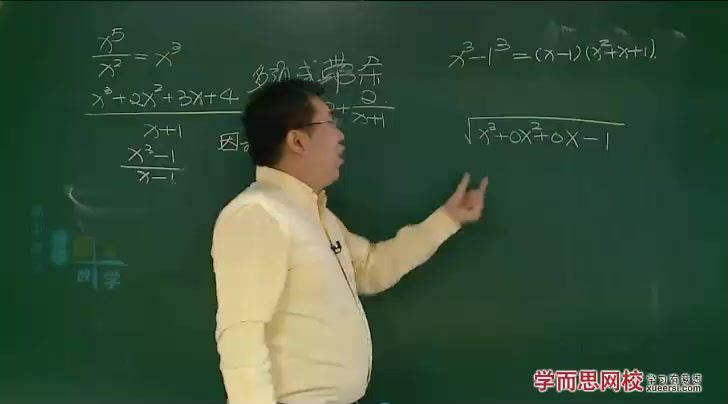 x⁵/x² = x³
多项式带余
x³+2x²+3x+4
x+1
2/x+1
因
x³-1/x-1
x³-1³=(x-1)(x²+x+1)
√x³+0x²+0x-1
数学
学而思网校
学习有意思
xueersi.com